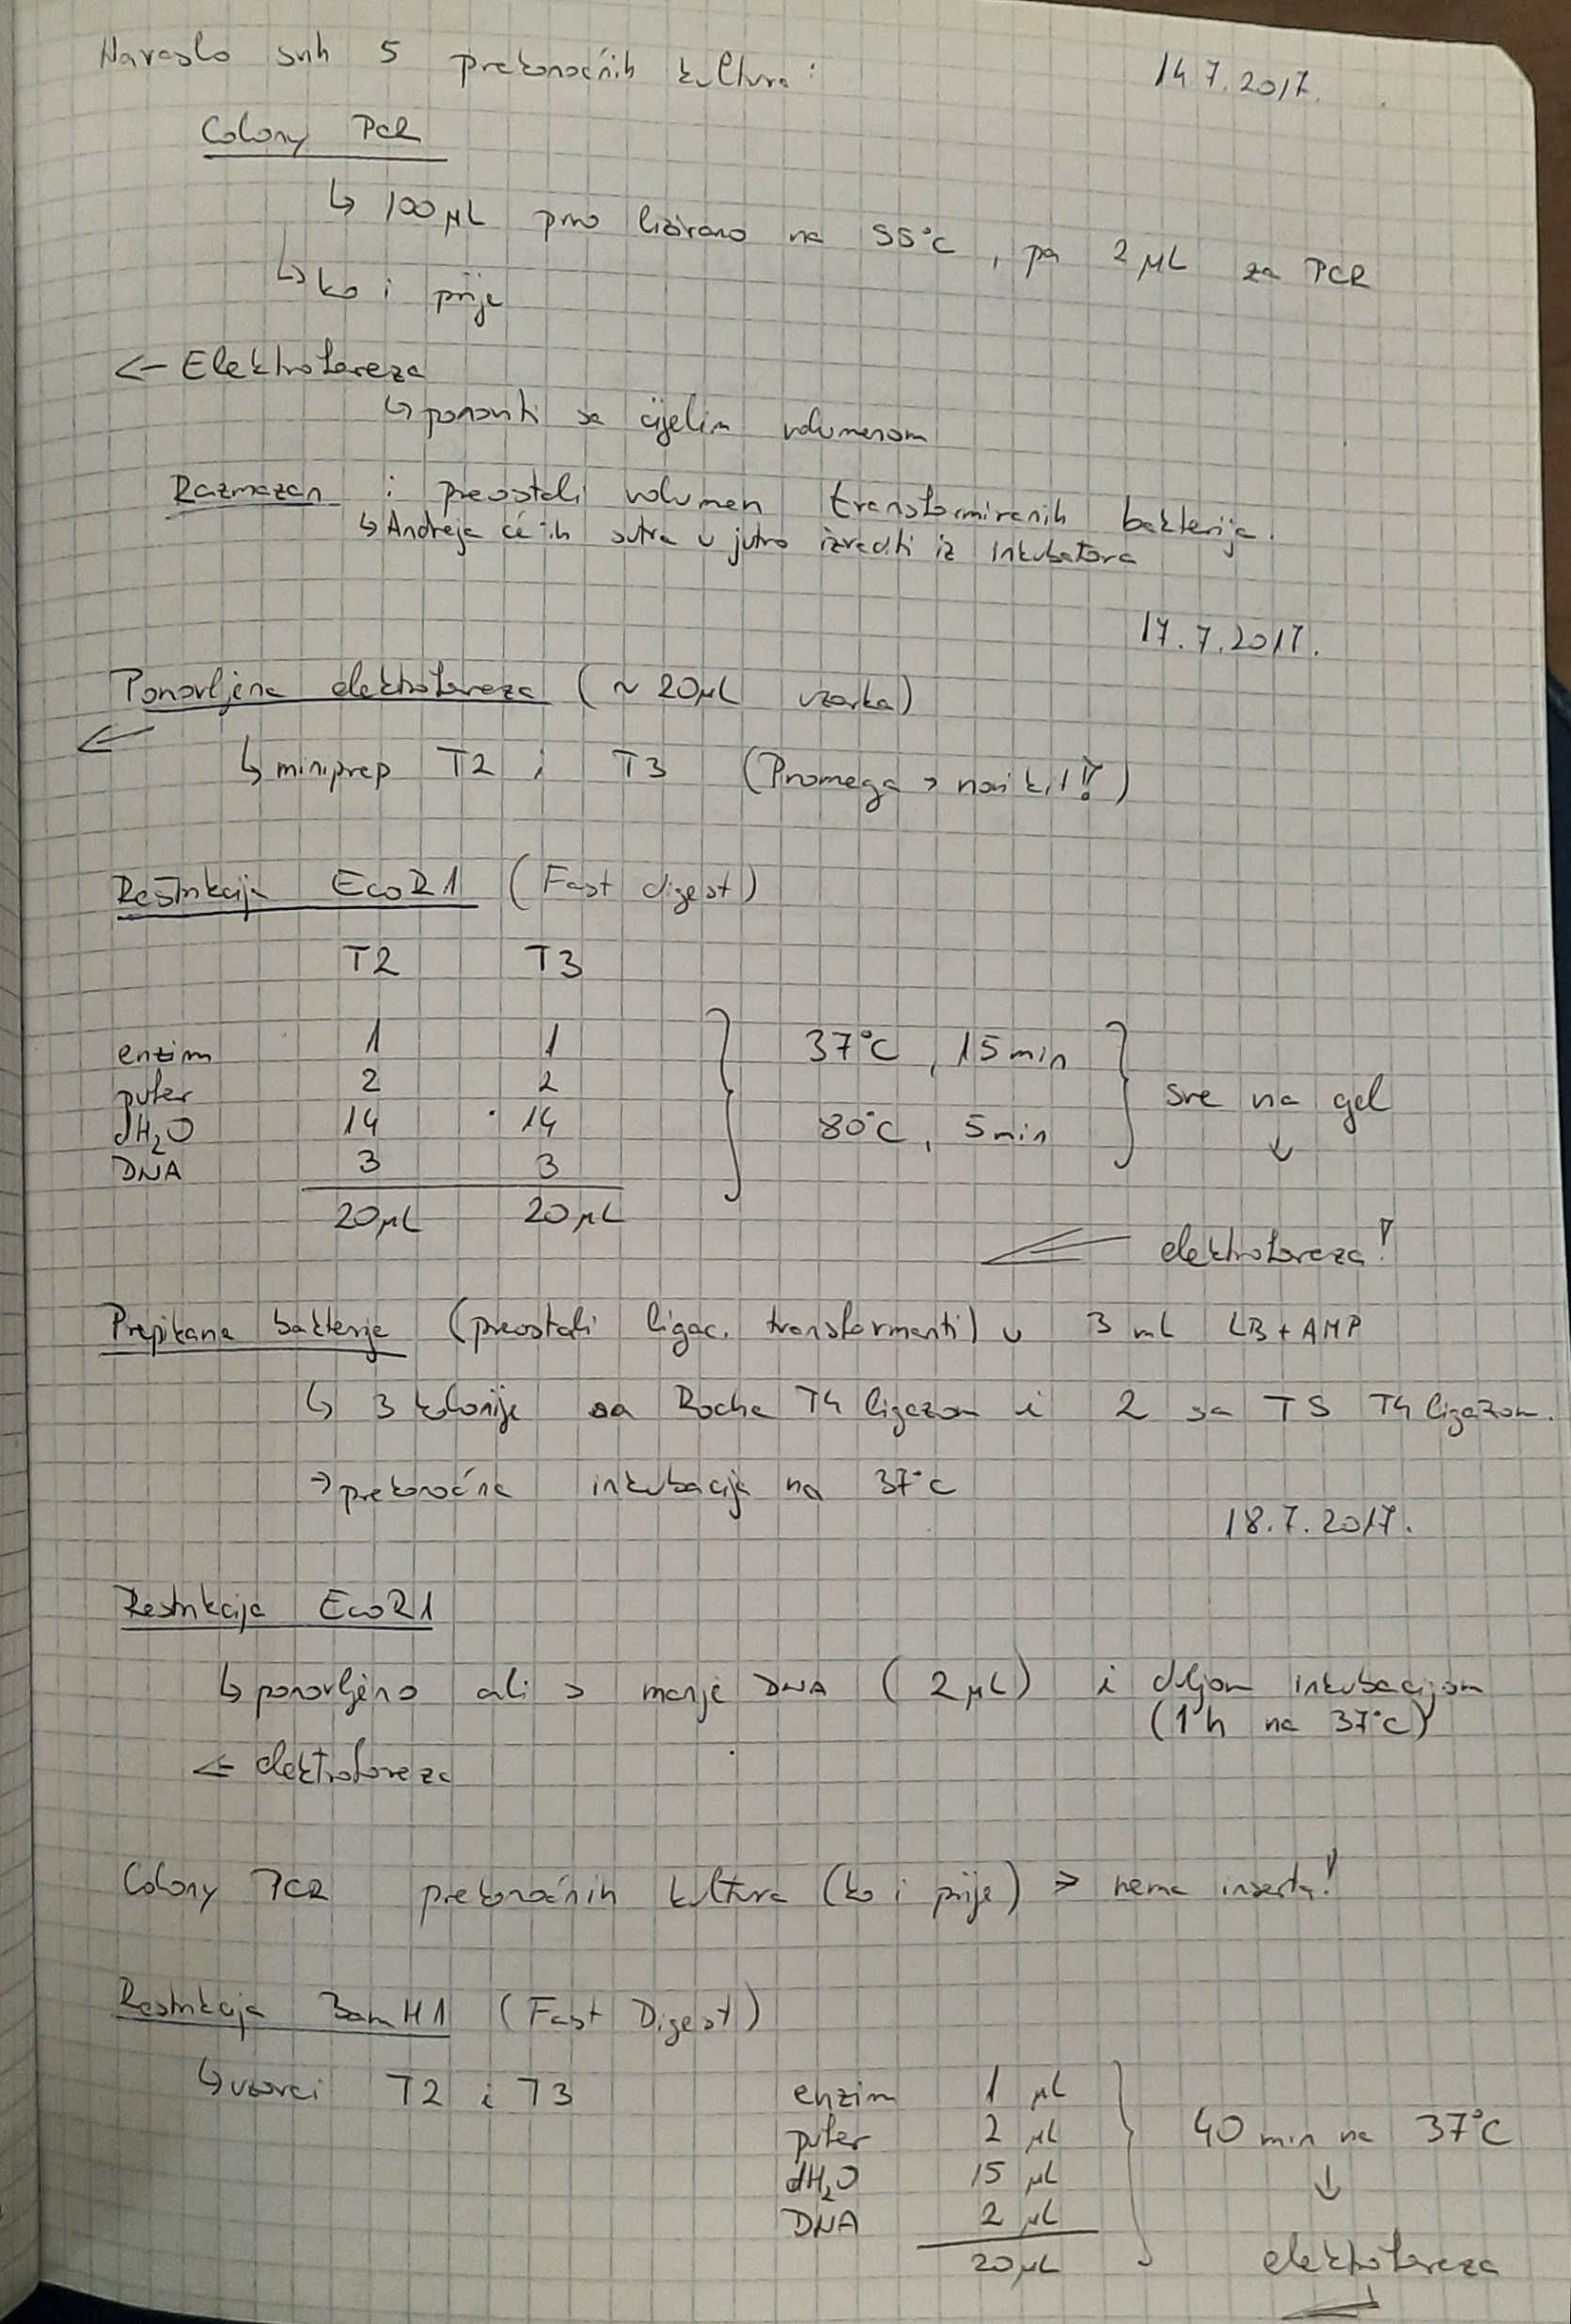 Naraslo svih 5 prekonoćnih kultura:
14.7.2017.
Colony PCR
↳ 100 μL prvo lizirano na 95°C, pa 2 μL za PCR
↳ ko i prije
← Elektroforeza
↳ ponoviti sa cijelim volumenom
Razmazan i preostali volumen transformiranih bakterija.
↳ Andreja će ih sutra u jutro izvaditi iz inkubatora
17.7.2017.
Ponovljena elektroforeza (~ 20 μL uzorka)
←
↳ miniprep T2 i T3 (Promega > novi kit!!)
Restrikcija EcoR1 (Fast digest)
T2 T3
enzim 1 1
pufer 2 2
dH₂O 14 14
DNA 3 3
20 μL 20 μL
37°C, 15 min
80°C, 5 min
sve na gel
↓
elektroforeza!
Prepikane bakterije (preostali ligac. transformanti) u 3 mL LB + AMP
↳ 3 kolonije sa Roche T4 ligazom i 2 sa TS T4 ligazom.
→ prekonoćna inkubacija na 37°C
18.7.2017.
Restrikcija EcoR1
↳ ponovljeno ali s manje DNA (2 μL) i duljom inkubacijom
(1h na 37°C)
← elektroforeza
Colony PCR prekonoćnih kultura (ko i prije) > nema inserta!
Restrikcija BamH1 (Fast Digest)
↳ uzorci T2 i T3
enzim 1 μL
pufer 2 μL
dH₂O 15 μL
DNA 2 μL
20 μL
40 min na 37°C
↓
elektroforeza